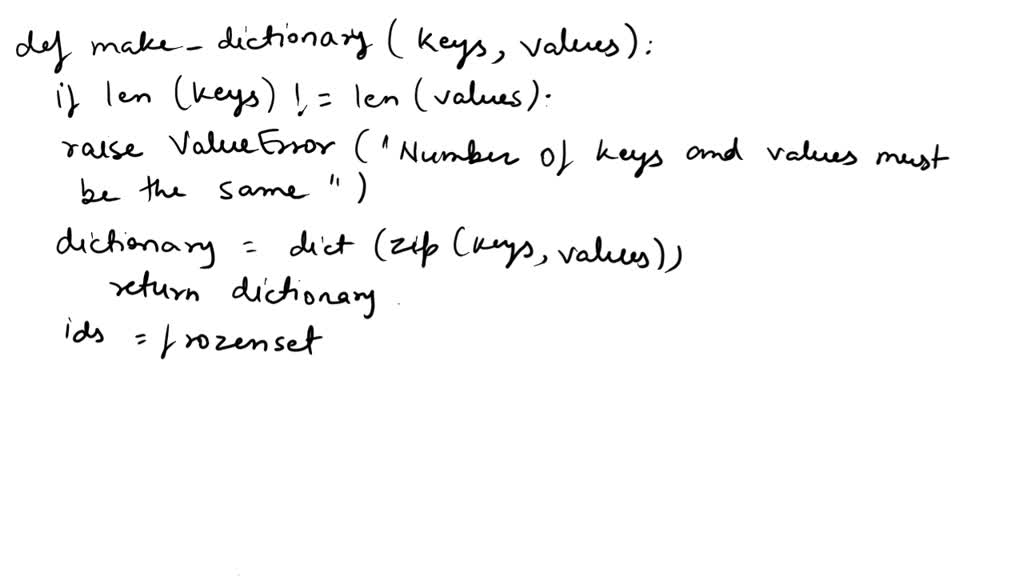 def make_dictionary (keys, values):
if len (keys) != len (values):
raise ValueError ("Number of keys and values must
be the same ")
dictionary = dict (zip (keys, values))
return dictionary
ids = frozenset